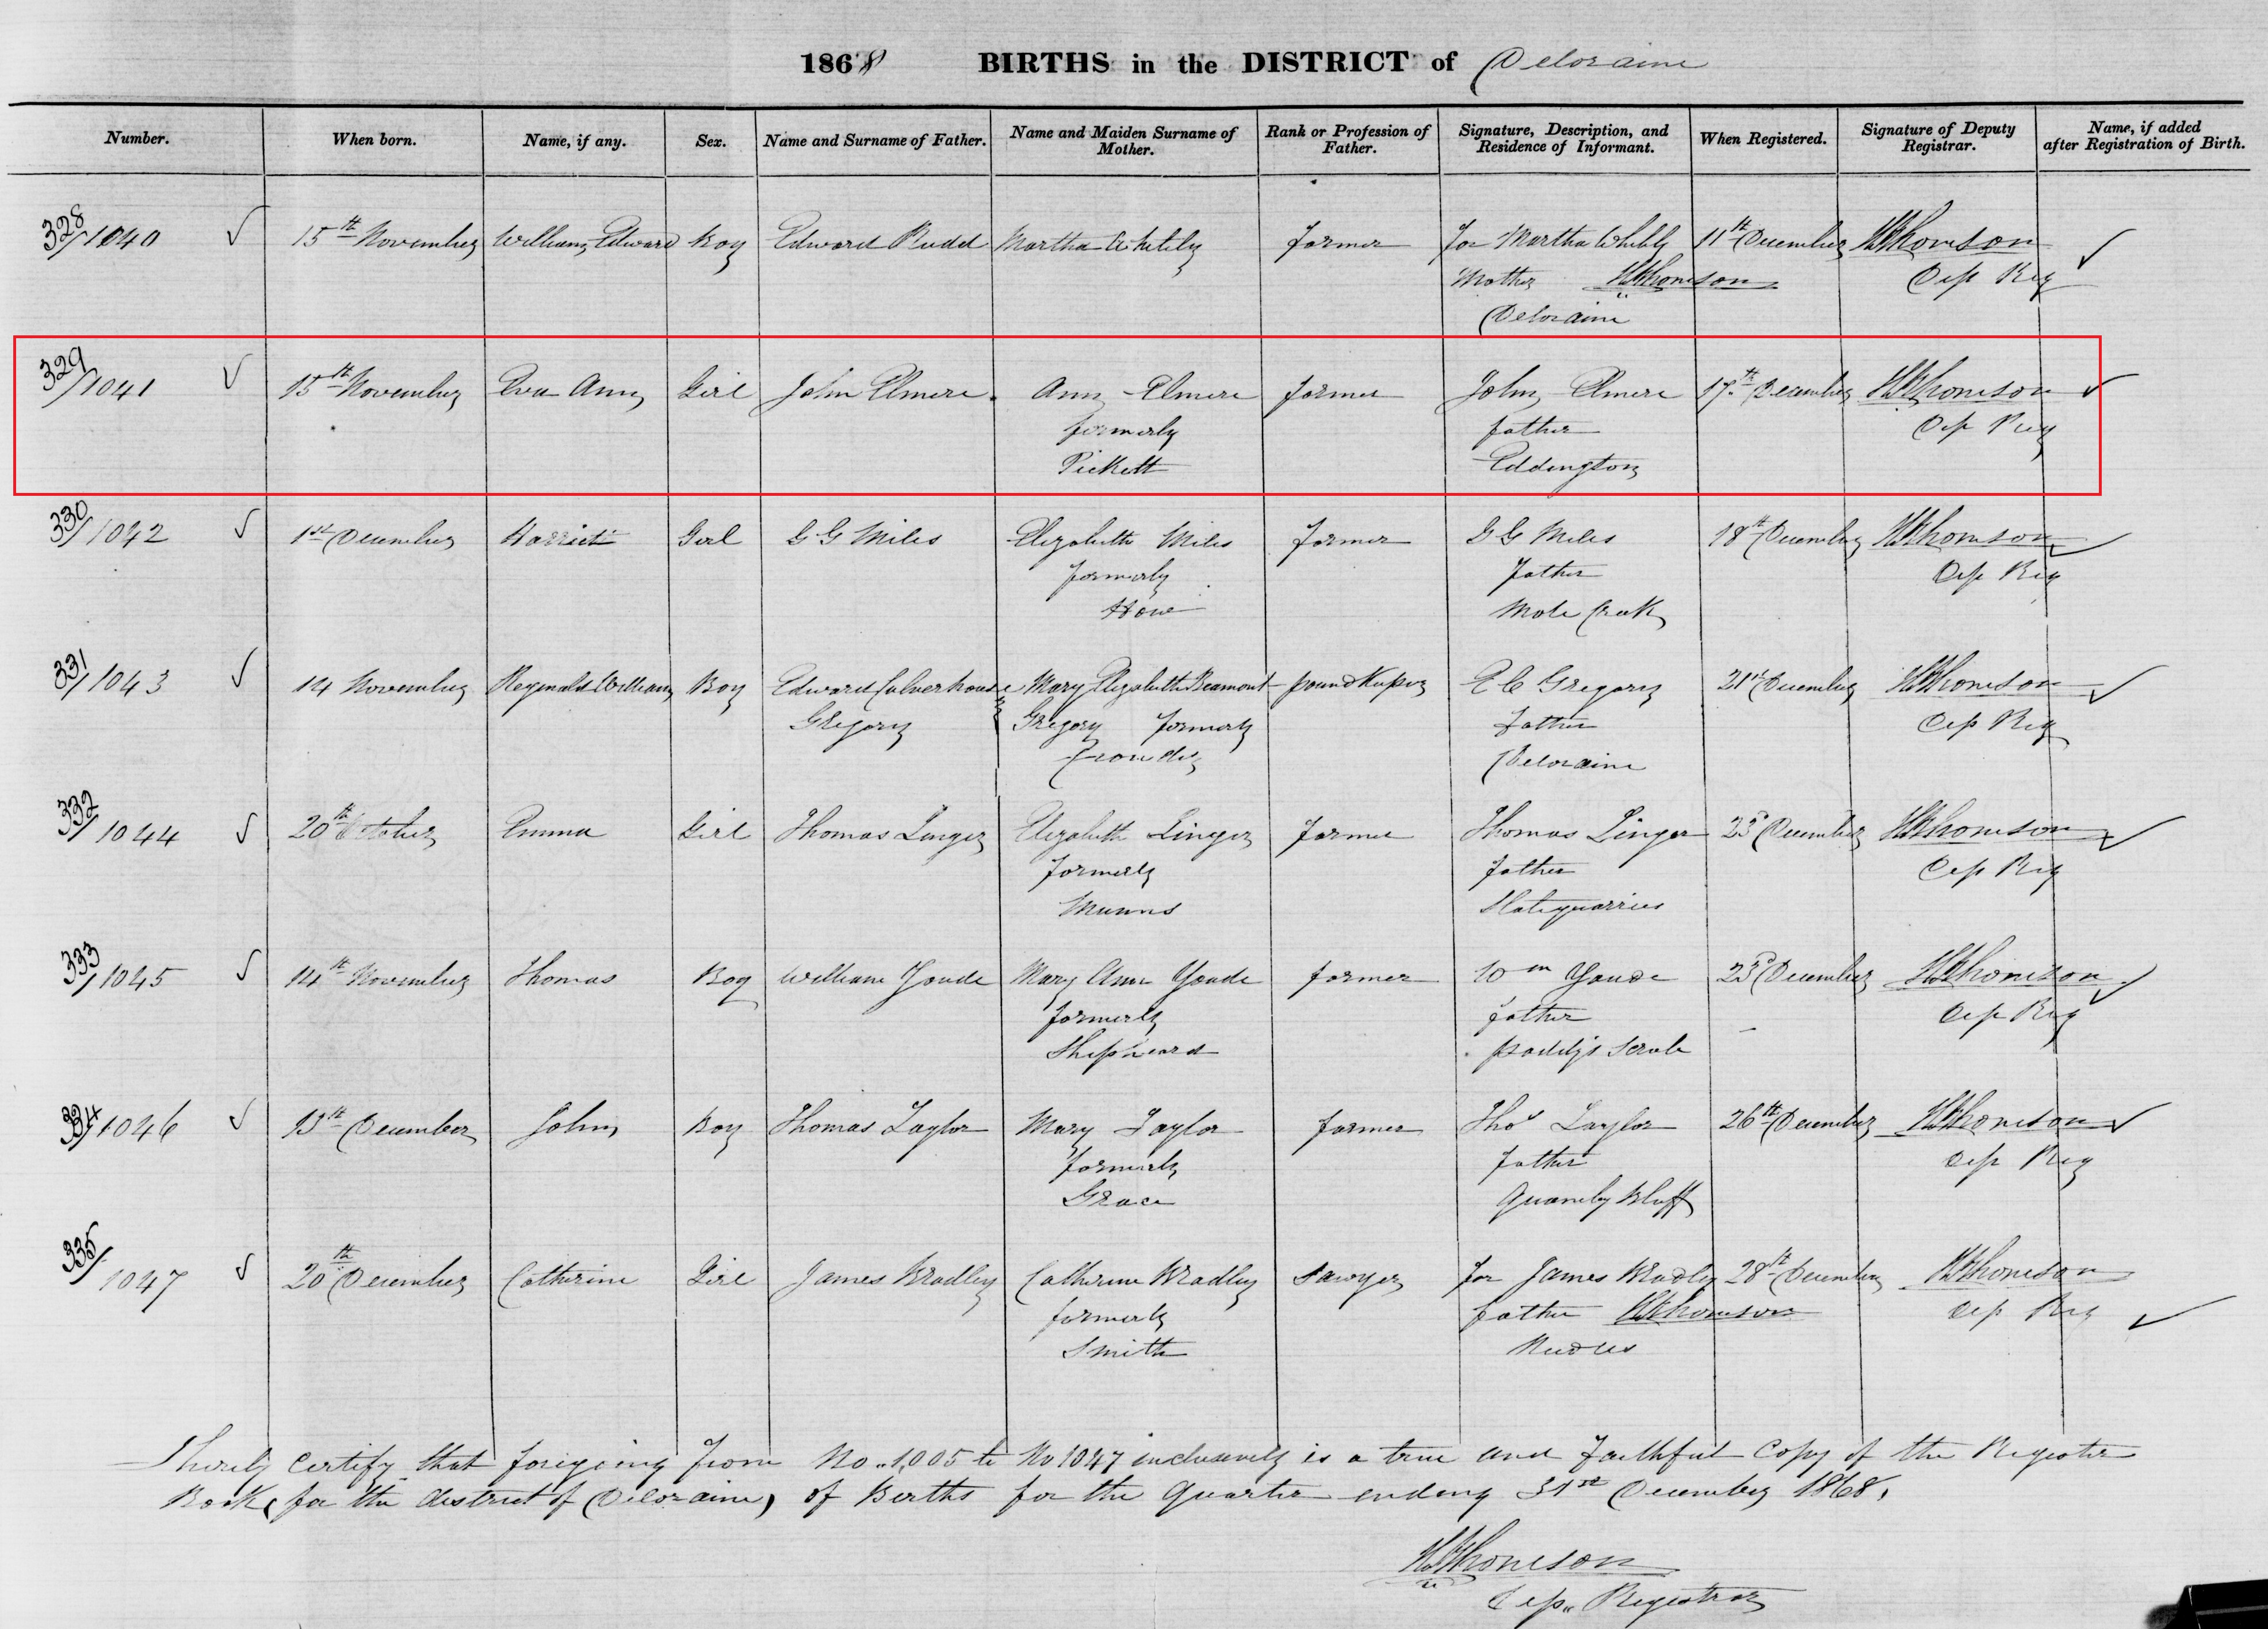 1868 BIRTHS in the DISTRICT of Deloraine
Number. When born. Name, if any. Sex. Name and Surname of Father. Name and Maiden Surname of Mother. Rank or Profession of Father. Signature, Description, and Residence of Informant. When Registered. Signature of Deputy Registrar. Name, if added after Registration of Birth.
328/1040 15th November William Edward Boy Edward Rudd Martha Whitely farmer for Martha 11th December
Mother Dep Reg
Deloraine
329/1041 15th November Eva Ann Girl John Elmere Ann Elmere farmer John Elmere 17th December
formerly father Dep Reg
Pickett Eddington
330/1042 1st December Harriet Girl G G Miles Elizabeth Miles farmer G G Miles 18th December
formerly father Dep Reg
How Mole Creek
331/1043 14 November Reginald William Boy Edward Culverhouse Mary Elizabeth Beamont poundkeeper E C Gregory 21st December
Gregory Gregory formerly father Dep Reg
Deloraine
332/1044 20th October Emma Girl Thomas Linger Elizabeth Linger farmer Thomas Linger 23d December
formerly father Dep Reg
Munns Slatequarries
333/1045 14th November Thomas Boy William Youde Mary Ann Youde farmer Wm Youde 23d December
formerly father Dep Reg
Shepheard paddy's scrub
334/1046 13th December John Boy Thomas Taylor Mary Taylor farmer Thos Taylor 26th December
formerly father Dep Reg
Grace Quamby Bluff
335/1047 20th December Catherine Girl James Bradley Catherine Bradley Sawyer for James Bradley 28th December
formerly father Dep Reg
Smith
I hereby certify that foregoing from No. 1005 to No 1047 inclusively is a true and faithful Copy of the Register
Book, for the district of Deloraine, of Births for the Quarter ending 31st December 1868.
Dep. Registrar